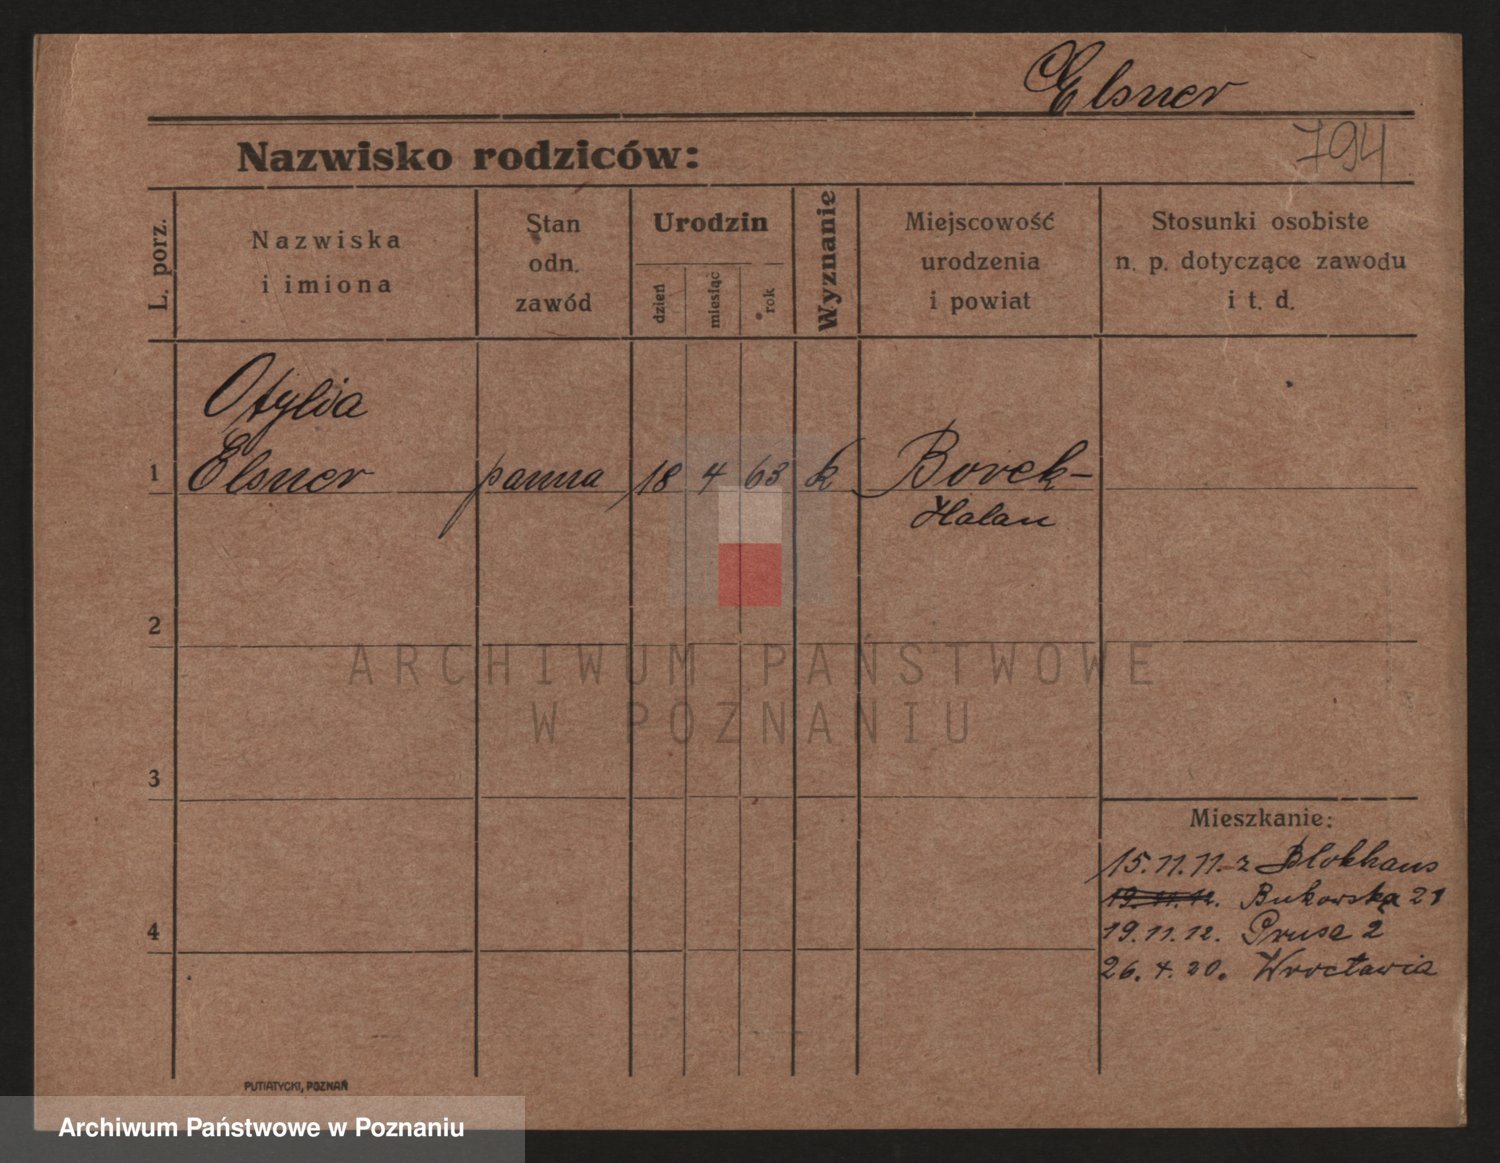 Elsner
794
Nazwisko rodziców:
L. porz.
Nazwiska
i imiona
Stan
odn.
zawód
Urodzin
dzień
miesiąc
rok
Wyznanie
Miejscowość
urodzenia
i powiat
Stosunki osobiste
n. p. dotyczące zawodu
i t. d.
Otylia
1 Elsner panna 18 4 63 k Borek-
Halan
2
ARCHIWUM PAŃSTWOWE
W POZNANIU
3
Mieszkanie:
15.11.11. z Blokhaus
19.11.12. Bukowska 21
4
19.11.12. Prusa 2
26.4.20. Wrocławia
PUTIATYCKI, POZNAŃ
Archiwum Państwowe w Poznaniu